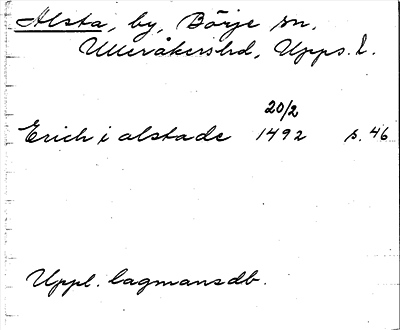 Alsta, by, Börje sn.
Ulleråkershd, Upps. l.
20/2
Erich i alstade 1492 s. 46
Uppl. lagmansdb.